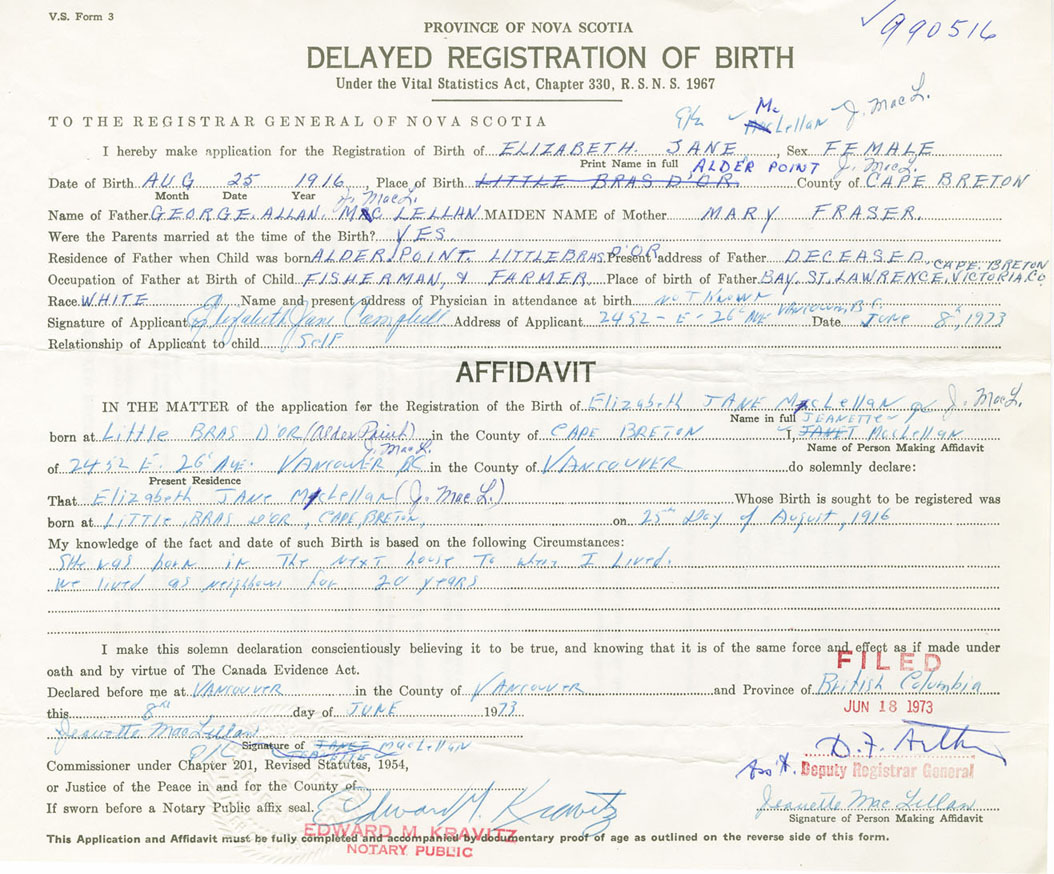 V.S. Form 3
990516
PROVINCE OF NOVA SCOTIA
DELAYED REGISTRATION OF BIRTH
Under the Vital Statistics Act, Chapter 330, R. S. N. S. 1967
Mc J. MacL.
TO THE REGISTRAR GENERAL OF NOVA SCOTIA MacLellan
I hereby make application for the Registration of Birth of ELIZABETH. JANE Sex FEMALE
Print Name in full ALDER POINT J. MacL.
Date of Birth AUG 25 1916 Place of Birth LITTLE BRAS D'OR County of CAPE BRETON
Month Date Year J. MacL.
Name of Father GEORGE. ALLAN. MAC LELLAN MAIDEN NAME of Mother MARY FRASER.
Were the Parents married at the time of the Birth? YES
Residence of Father when Child was born ALDER POINT. LITTLE BRAS D'OR Present address of Father DECEASED. CAPE BRETON
Occupation of Father at Birth of Child FISHERMAN, & FARMER Place of birth of Father BAY. ST. LAWRENCE, VICTORIA Co.
Race WHITE Name and present address of Physician in attendance at birth NOT KNOWN
Signature of Applicant Elizabeth Jane Campbell Address of Applicant 2452 - E - 26th AVE VANCOUVER B.C. Date JUNE 8th, 1973
Relationship of Applicant to child SELF
AFFIDAVIT
IN THE MATTER of the application for the Registration of the Birth of Elizabeth JANE MacLellan J. MacL.
Name in full JEANETTE
born at Little BRAS D'OR (Alder Point) in the County of CAPE BRETON I, JANET MacLellan
J. MacL. Name of Person Making Affidavit
of 2452 E. 26th Ave. VANCOUVER BC in the County of VANCOUVER do solemnly declare:
Present Residence
That Elizabeth JANE MacLellan (J. MacL.) Whose Birth is sought to be registered was
born at LITTLE BRAS D'OR, CAPE BRETON, on 25th Day of August, 1916
My knowledge of the fact and date of such Birth is based on the following Circumstances:
SHe was born in The next house To when I Lived.
we lived as neighbours for 20 years
I make this solemn declaration conscientiously believing it to be true, and knowing that it is of the same force and effect as if made under
oath and by virtue of The Canada Evidence Act.
FILED
Declared before me at VANCOUVER in the County of VANCOUVER and Province of British Columbia
JUN 18 1973
this 8th day of JUNE 1973
Jeanette MacLellan
Signature of JANET MacLellan
D. F. Arthur
Ass't. Deputy Registrar General
Commissioner under Chapter 201, Revised Statutes, 1954,
or Justice of the Peace in and for the County of
If sworn before a Notary Public affix seal. Edward M. Kravitz
Jeanette MacLellan
Signature of Person Making Affidavit
EDWARD M. KRAVITZ
NOTARY PUBLIC
This Application and Affidavit must be fully completed and accompanied by documentary proof of age as outlined on the reverse side of this form.